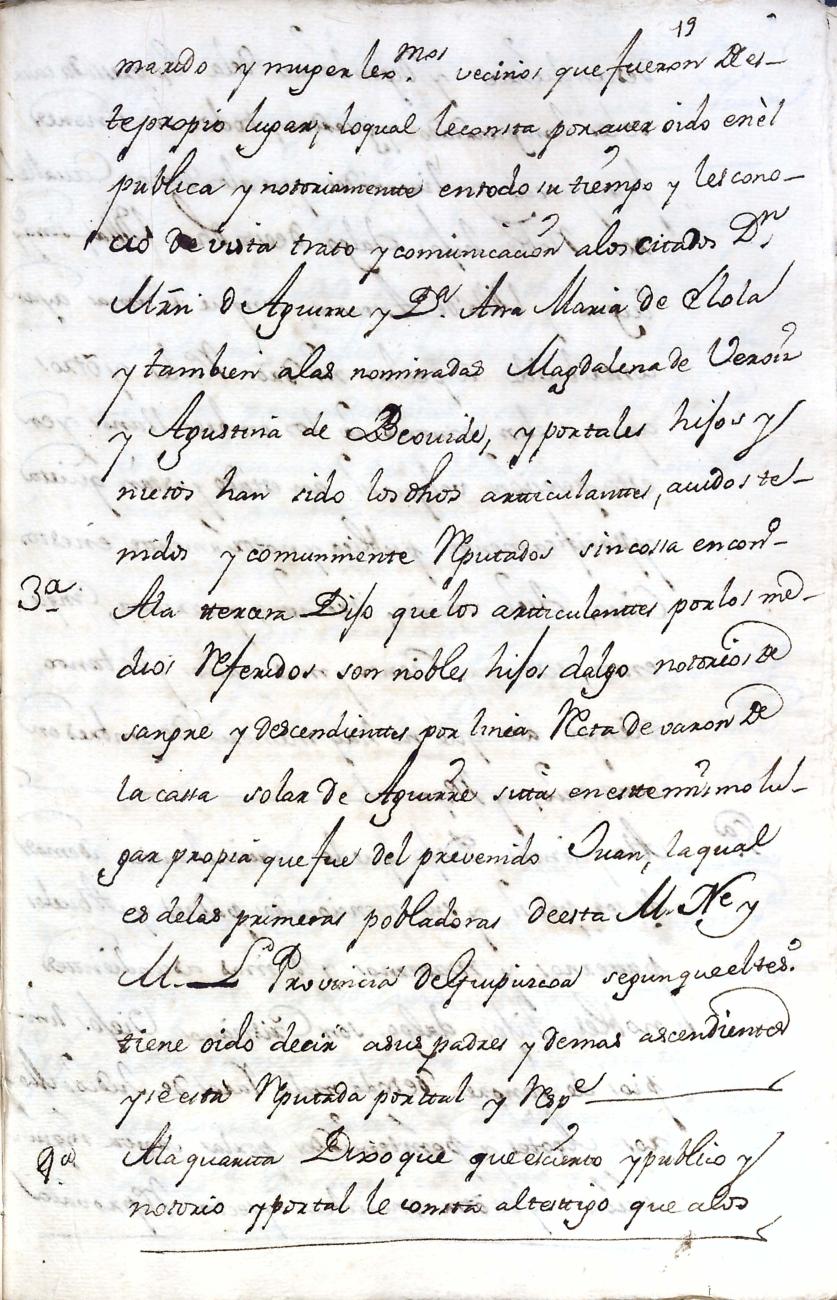 19
marido y muger lexmos. vecinos que fueron de es-
te propio lugar, lo qual le consta por aver oido en èl
publica y notoriamentte en todo su tiempo y les cono-
ció de vista trato y comunicación a los citados Dn.
Mrñ d Aguirre y Da. Ana Maria de Elola
y tambien a las nominadas Magdalena de
y Agustina de Beovide, y por tales hijos y
nietos han sido los dhos artticulanttes, avidos te-
nidos y comunmente Reputados sin cossa en contro-
3a Ala ttercera Dijo que los artticulanttes por los me-
dios Referidos son nobles hijos dalgo notorios de
sangre y descendienttes por linea Recta de varon de
la cassa solar de Aguirre sitta en estte mismo lu-
gar propia que fue del prevenido Juan, la qual
es de las primeras pobladoras de esta M. Ne y
M. L Provincia de Guipuzcoa segun que el tesº.
tiene oido decir a sus padres y demas ascendientes
y se està Reputada por ttal y Respe
4a Ala quartta Dixo que que es cierto y publico y
notorio y por tal le consta al testtigo que a los